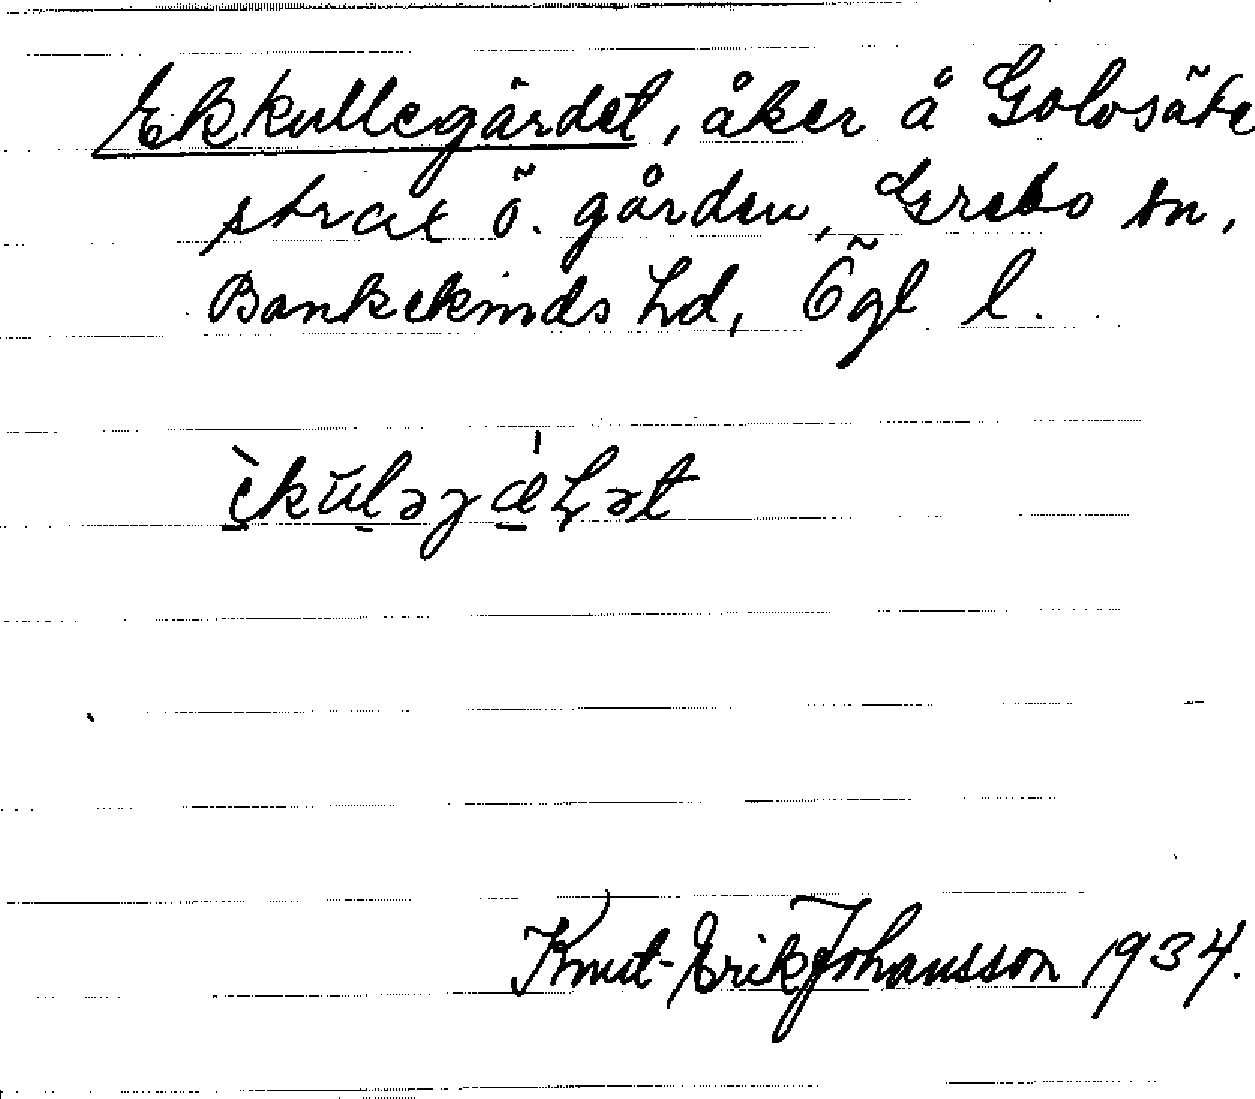 Ekkullegärdet, åker å Golvsäte
strax ö. gården, Grebo sn,
Bankekinds hd, Ögl l.
Knut-Erik Johansson 1934.